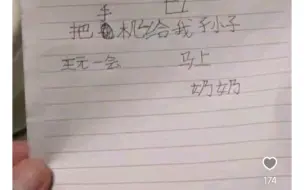 把手机给我孙子
玩一会 马上
奶奶
174